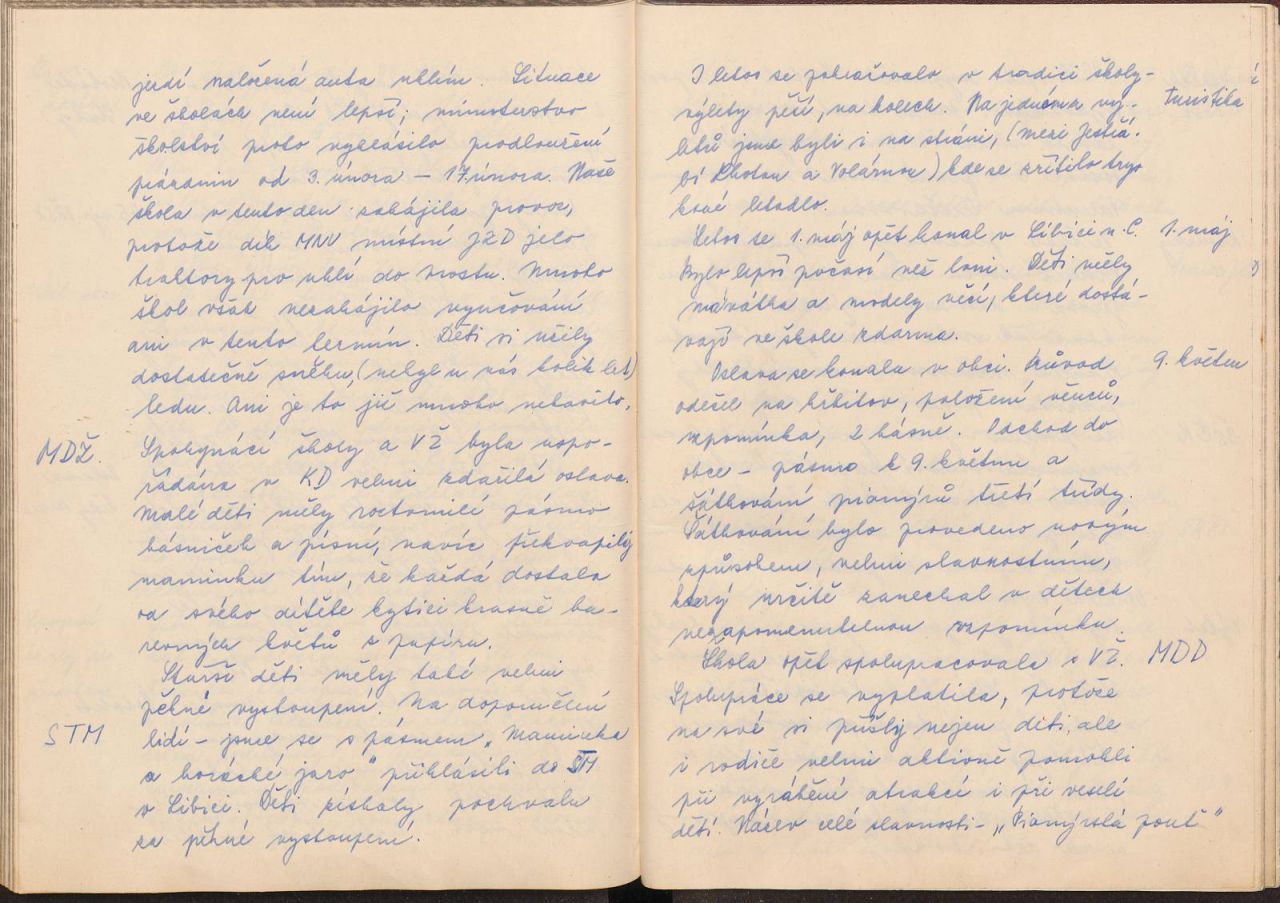 jezdí naložená auta uhlím. Situace
ve školách není lepší; ministerstvo
školství proto vyhlásilo prodloužení
prázdnin od 3. února – 17. února. Naše
škola v tento den zahájila provoz,
protože dík MNV místní JZD jelo
traktory pro uhlí do mostu. Mnoho
škol však nezahájilo vyučování
ani v tento termín. Děti si užily
dostatečně sněhu, (nebyl u nás tolik let)
ledu. Ani je to již mnoho nebavilo.
MDŽ.
Spoluprací školy a VŽ byla uspo-
řádána v KD velmi zdařilá oslava.
Malé děti měly roztomilé pásmo
básniček a písní, navíc překvapily
maminku tím, že každá dostala
od svého dítěte kytici krásně ba-
revných květů z papíru.
Starší děti měly také velmi
pěkné vystoupení. Na doporučení
STM
lidí – jsme se s pásmem „Maminka
a horácké jaro" přihlásili do STM
v Libici. Děti získaly pochvalu
za pěkné vystoupení.
I letos se pokračovalo v tradici školy-
turistika
výlety pěší, na kolech. Na jednom z vý-
letů jsme byli i na stráni, (mezi
Lhotou a ) kde se zřítilo trys
kové letadlo.
Letos se 1. máj opět konal v Libici n. C.
1. máj
Bylo lepší počasí než loni. Děti měly
mávátka a modely věcí, které dostá-
vají ve škole zdarma.
Oslava se konala v obci. Průvod
9. květen
odešel na hřbitov, položení věnců,
vzpomínka, 2 básně. Odchod do
obce – pásmo k 9. květnu a
šátkování pionýrů třetí třídy.
Šátkování bylo provedeno novým
způsobem, velmi slavnostním,
který určitě zanechal v dětech
nezapomenutelnou vzpomínku.
Škola opět spolupracovala s VŽ.
MDD
Spolupráce se vyplatila, protože
na své si přišly nejen děti, ale
i rodiče velmi aktivně pomohli
při vyrábění atrakcí i při veselí
dětí. Název celé slavnosti – „Pionýrská pouť"